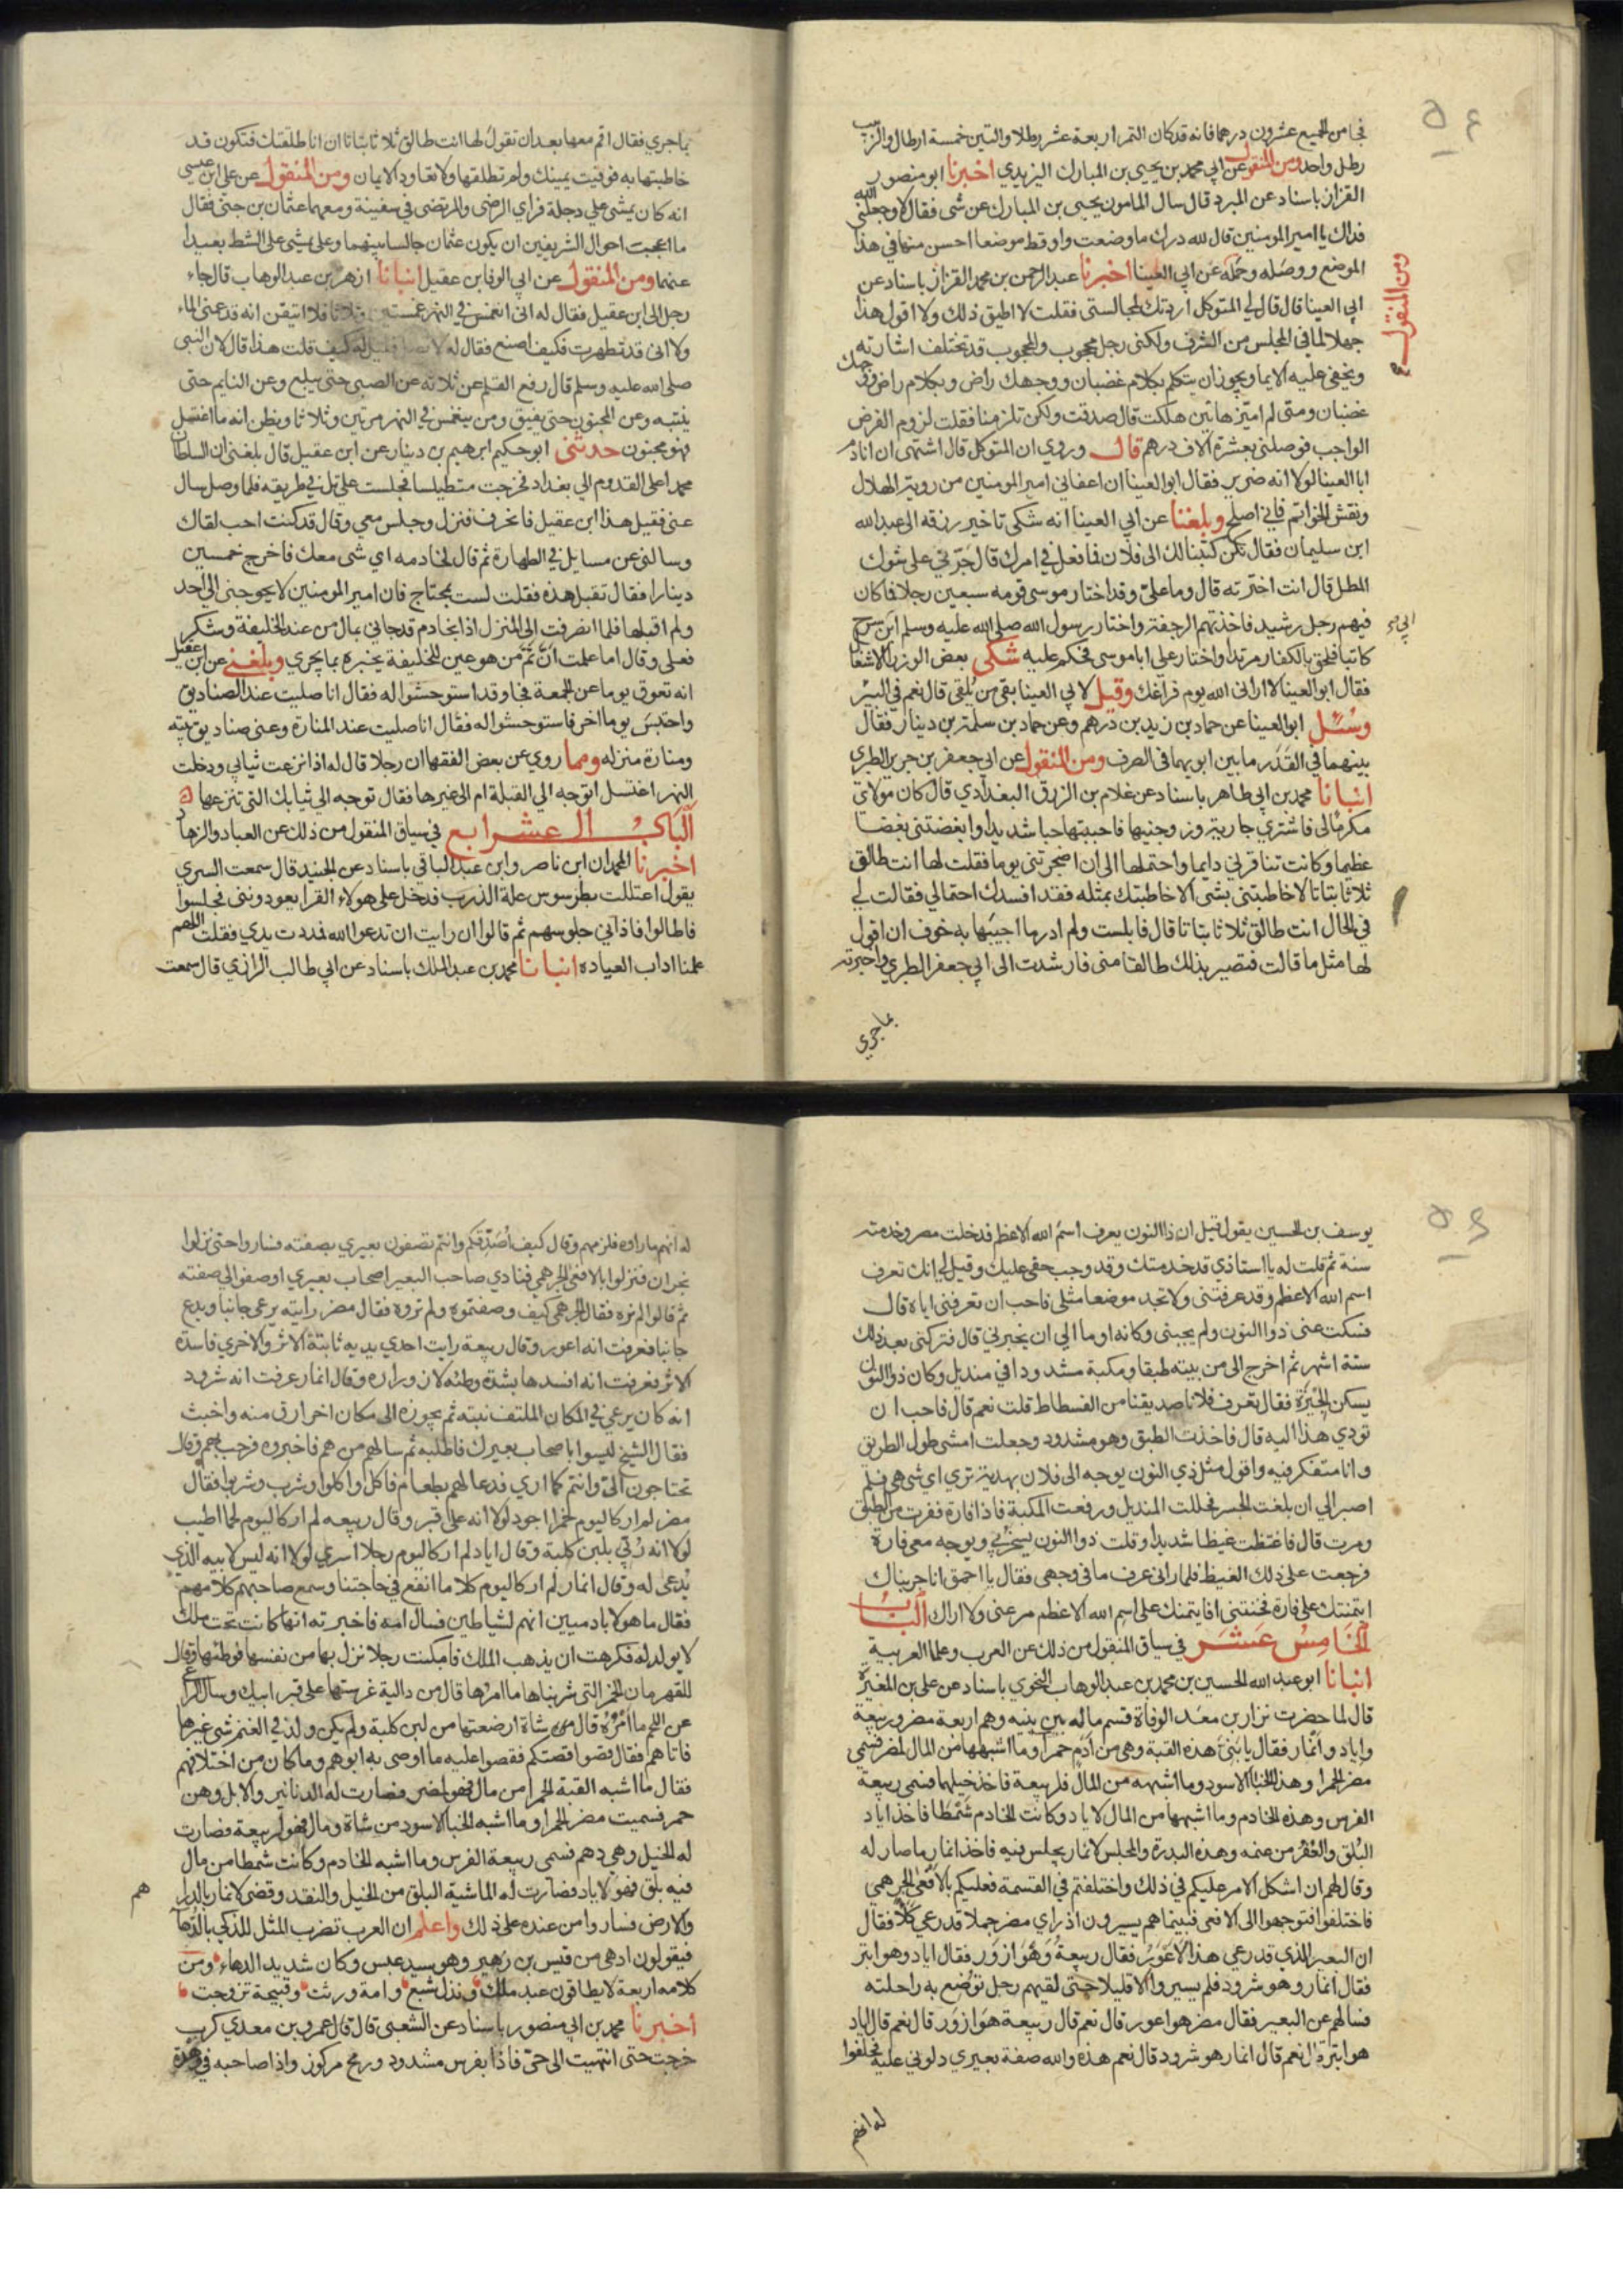 فجا من الجميع عشرون درهما فانه قد كان التمر اربعة عشر رطلا والتين خمسة ارطال والزبيب
رطل واحد ومن المنقول عن ابي محمد بن يحيى بن المبارك اليزيدي اخبرنا ابو منصور
القزاز باسناد عن المبرد قال سال المامون يحيى بن المبارك عن شى فقال لا وجعلني الله
فداك يا امير المومنين قال لله درك ما وضعت واو قط موضعا احسن منها في هذا
الموضع ووصله وحمله عن ابي العينا اخبرنا عبد الرحمن بن محمد القزاز باسناد عن
ومن المنقول
ابي العينا قال قال لي المتوكل اردتك لمجالستى فقلت لا اطيق ذلك ولا اقول هذا
جهلا لما في المجلس من الشرف ولكنى رجل محجوب والمحجوب قد تختلف اشارته
ويخفى عليه الايما ويجوز ان يتكلم بكلام غضبان ووجهك راض وبكلام راض ووجهك
غضبان ومتى لم اميز هاتين هلكت قال صدقت ولكن تلزمنا فقلت لزوم الفرض
الواجب فوصلنى بعشرة الاف درهم قال وروي ان المتوكل قال اشتهى ان انادم
ابا العينا لولا انه ضرير فقال ابو العينا ان اعفاني امير المومنين من روية الهلال
ونقش الخواتم فاني اصلح وبلغنا عن ابي العينا انه شكى تاخير رزقه الى عبد الله
ابن سليمان فقال نكن كتبنا لك الى فلان فما فعل في امرك قال جرني على شوك
المطل قال انت اخترته قال وما علي وقد اختار موسى قومه سبعين رجلا فما كان
فيهم رجل رشيد فاخذتهم الرجفة واختار رسول الله صلى الله عليه وسلم ابن سرح
ابي
كاتبا فلحق بالكفار مرتدا واختار علي ابا موسى فحكم عليه شكى بعض الوزرا الاشغال
فقال ابو العينا لا اراني الله يوم فراغك وقيل لابي العينا بقي من يلقى قال نعم في البير
وسئل ابو العينا عن حماد بن زيد بن درهم وعن حماد بن سلمة بن دينار فقال
بينهما في القدر ما بين ابويهما في الصرف ومن المنقول عن ابي جعفر بن جرير الطبري
انبانا محمد بن ابي طاهر باسناد عن غلام بن الزرق البغدادي قال كان مولاي
مكرما لي فاشترى جارية وزوجنيها فاحببتها حبا شديدا وابغضتنى بغضا
عظيما وكانت تنافرني دايما واحتملها الى ان اضجرتنى يوما فقلت لها انت طالق
ثلاثا بتاتا لا خاطبتنى بشى الا خاطبتك بمثله فقد افسدك احتمالي فقالت لي
في الحال انت طالق ثلاثا بتاتا قال فابلست ولم ادر ما اجيبها به خوف ان اقول
لها مثل ما قالت فتصير بذلك طالقا منى فارشدت الى ابي جعفر الطبري واخبرته
بما جري
بما جري فقال اقم معها بعد ان تقول لها انت طالق ثلاثا بتاتا ان انا طلقتك فتكون قد
خاطبتها به فوفيت يمينك ولم تطلقها ولا تعاود الايمان ومن المنقول عن على ابن عيسى
انه كان يمشى على دجلة فراي الرضى والمرتضى في سفينة ومعهما عثمان بن جنى فقال
ما اعجبت احوال الشريفين ان يكون عثمان جالسا بينهما وعلى يمشى على الشط بعيدا
عنهما ومن المنقول عن ابي الوفا بن عقيل انبانا ازهر بن عبد الوهاب قال جاء
رجل الى ابن عقيل فقال له انى انغمس في النهر غمستين وثلاثا فلا اتيقن انه قد عمنى الماء
ولا انى قد تطهرت فكيف اصنع فقال له لا تصل فقيل له كيف قلت هذا قال لان النبى
صلى الله عليه وسلم قال رفع القلم عن ثلاثة عن الصبى حتى يبلغ وعن النايم حتى
ينتبه وعن المجنون حتى يفيق ومن ينغمس في النهر مرتين وثلاثا ويظن انه ما اغتسل
فهو مجنون حدثنى ابو حكيم ابرهيم بن دينار عن ابن عقيل قال بلغنى ان السلطان
محمدا على القدوم الى بغداد فخرجت متطيلسا فجلست على تل في طريقه فلما وصل سال
عنى فقيل هذا ابن عقيل فانحرف فنزل وجلس معي وقال قد كنت احب لقاك
وسالنى عن مسايل في الطهارة ثم قال لخادمه اي شى معك فاخرج خمسين
دينارا فقال تقبل هذه فقلت لست بمحتاج فان امير المومنين لا يحوجنى الى احد
ولم اقبلها فلما انصرفت الى المنزل اذا بخادم قد جاني بمال من عند الخليفة وشكر
فعلى وقال اما علمت ان ثم من هو عين للخليفة يخبره بما يجري وبلغني عن ابن عقيل
انه تعوق يوما عن الجمعة فجا وقد استوحشوا له فقال انا صليت عند الصناديق
واحتبس يوما اخر فاستوحشوا له فقال انا صليت عند المنارة وعنى صناديق بيته
ومنارة منزله ومما روي عن بعض الفقها ان رجلا قال له اذا نزعت ثيابي ودخلت
النهر اغتسل اتوجه الي القبلة ام الى غيرها فقال توجه الي ثيابك التى تنزعها
الباب الرابع عشر في سياق المنقول من ذلك عن العباد والزهاد
اخبرنا المحمدان ابن ناصر وابن عبد الباقي باسناد عن الجنيد قال سمعت السري
يقول اعتللت بطرسوس علة الذرب فدخل على هولاء القرا يعودوننى فجلسوا
فاطالوا فاذاني جلوسهم ثم قالوا ان رايت ان تدعو الله فمددت يدي فقلت اللهم
علمنا اداب العياده انبانا محمد بن عبد الملك باسناد عن ابي طالب الرازي قال سمعت
يوسف بن الحسين يقول قيل ان ذا النون يعرف اسم الله الاعظم فدخلت مصر وخدمته
سنة ثم قلت له يا استاذي قد خدمتك وقد وجب حقي عليك وقيل لي انك تعرف
اسم الله الاعظم وقد عرفتنى ولا تجد موضعا مثلى فاحب ان تعرفنى اياه قال
فسكت عنى ذو النون ولم يجبنى وكانه اوما الي ان يخبرني قال فتركنى بعد ذلك
ستة اشهر ثم اخرج الى من بيته طبقا ومكبة مشدودا في منديل وكان ذو النون
يسكن الجيزة فقال تعرف فلانا صديقنا من الفسطاط قلت نعم قال فاحب ان
تودي هذا اليه قال فاخذت الطبق وهو مشدود وجعلت امشى طول الطريق
وانا متفكر فيه واقول مثل ذي النون يوجه الى فلان بهدية تري اي شى هى فلم
اصبر الي ان بلغت الجسر فحللت المنديل ورفعت المكبة فاذا فارة ففرت من الطبق
ومرت قال فاغتظت غيظا شديدا وقلت ذو النون يسخر بي ويوجه معى فارة
فرجعت على ذلك الغيظ فلما رانى عرف ما في وجهى فقال يا احمق انا جربناك
ايتمنتك على فارة فخنتنى افايتمنك على اسم الله الاعظم مر عنى ولا اراك الباب
الخامس عشر في سياق المنقول من ذلك عن العرب وعلما العربية
انبانا ابو عبد الله الحسين بن محمد بن عبد الوهاب النحوي باسناد عن على بن المغيرة
قال لما حضرت نزار بن معد الوفاة قسم ماله بين بنيه وهم اربعة مضر وربيعة
واياد وانمار فقال يا بني هذه القبة وهى من ادم حمرا وما اشبهها من المال لمضر فسمي
مضر الحمرا وهذا الخبا الاسود وما اشبهه من المال فلربيعة فاخذ خيلهما فسمى ربيعة
الفرس وهذه الخادم وما اشبهها من المال لاياد وكانت الخادم شمطا فاخذ اياد
البلق والغفر من غنمه وهذه البدرة والمجلس لانمار يجلس فيه فاخذ انمار ما صار له
وقال لهم ان اشكل الامر عليكم في ذلك واختلفتم في القسمة فعليكم بالافعى الجرهمي
فاختلفوا فتوجهوا الى الافعى فبينما هم يسيرون اذ راي مضر جملا قد رعي كلا فقال
ان البعير الذي قد رعي هذا الاعور فقال ربيعة وهو ازور فقال اياد وهو ابتر
فقال انمار وهو شرود فلم يسيروا الا قليلا حتى لقيهم رجل توضع به راحلته
فسالهم عن البعير فقال مضر هو اعور قال نعم قال ربيعة هو ازور قال نعم قال اياد
هو ابتر قال نعم قال انمار هو شرود قال نعم هذه والله صفة بعيري دلوني عليه فحلفوا
له انهم
له انهم ما راوه فلزمهم وقال كيف اصدقكم وانتم تصفون بعيري بصفته فساروا حتى نزلوا
نجران فنزلوا بالافعى الجرهمي فنادي صاحب البعير اصحاب بعيري اوصفوا لي صفته
ثم قالوا لم نره فقال الجرهمى كيف وصفتموه ولم تروه فقال مضر رايته يرعى جانبا ويدع
جانبا فعرفت انه اعور وقال ربيعة رايت احدي يديه ثابتة الاثر والاخري فاسدة
الاثر فعرفت انه افسدها بشدة وطئه لازوراره وقال انمار عرفت انه شرود
انه كان يرعي في المكان الملتف نبته ثم يجوزه الى مكان اخر ارق منه واخبث
فقال الشيخ ليسوا باصحاب بعيرك فاطلبه ثم سالهم من هم فاخبروه فرحب بهم وقال
تحتاجون الي وانتم كما اري فدعا لهم بطعام فاكل واكلوا وشرب وشربوا فقال
مضر لم ار كاليوم خمرا اجود لولا انه على قبر وقال ربيعه لم ار كاليوم لحما اطيب
لولا انه ربي بلبن كلبة وقال اياد لم ار كاليوم رجلا اسري لولا انه ليس لابيه الذي
يدعى له وقال انمار لم ار كاليوم كلاما انفع في حاجتنا وسمع صاحبهم كلامهم
فقال ما هولا بادميين انهم لشياطين فسال امه فاخبرته انها كانت تحت ملك
لا يولد له فكرهت ان يذهب الملك فامكنت رجلا نزل بها من نفسها فوطئها وقال
للقهرمان الخمر التى شربناها ما امرها قال من دالية غرستها على قبر ابيك وسال الراعي
عن اللحم ما امره قال من شاة ارضعتها من لبن كلبة ولم يكن ولد في الغنم شى غيرها
فاتاهم فقال قصوا قصتكم فقصوا عليه ما اوصى به ابوهم وما كان من اختلافهم
فقال ما اشبه القبة الحمرا من مال فهو لمضر فصارت له الدنانير والابل وهن
حمر فسميت مضر الحمرا وما اشبه الخبا الاسود من شاة ومال فهو لربيعة فصارت
له الخيل وهي دهم فسمى ربيعة الفرس وما اشبه الخادم وكانت شمطا من مال
فيه بلق فهو لاياد فصارت له الماشية البلق من الخيل والنقد وقضى لانمار بالدراهم
والارض فساروا من عنده على ذلك واعلم ان العرب تضرب المثل للذكي بالدها
فيقولون ادهى من قيس بن زهير وهو سيد عبس وكان شديد الدهاء ومن
كلامه اربعة لا يطاقون عبد ملك ونذل شبع وامة ورثت وقبيحة تزوجت
اخبرنا محمد بن ابي منصور باسناد عن الشعبى قال قال عمرو بن معدي كرب
خرجت حتى انتهيت الى حى فاذا بفرس مشدود ورمح مركوز واذا صاحبه في وهدة